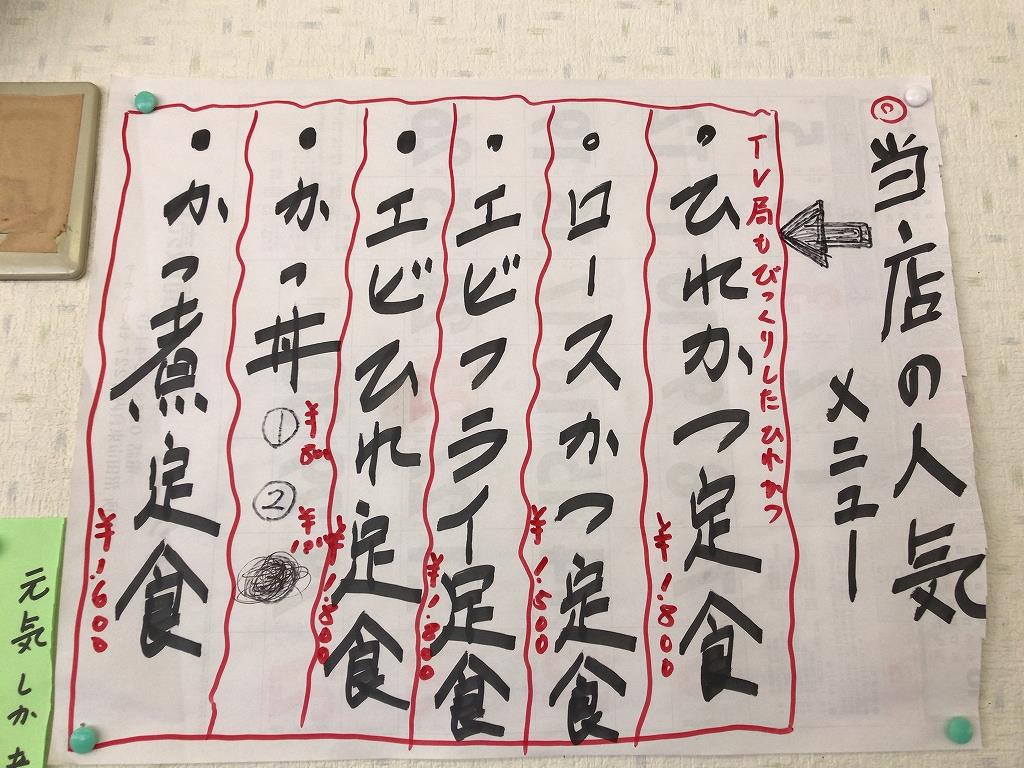 当店の人気
メニュー
TV局もびっくりしたひれかつ
・ひれかつ定食
¥1.800
・ロースかつ定食
¥1.500
・エビフライ定食
¥1.800
・エビひれ定食
¥1.800
・かつ丼 ① ¥800 ②
・かつ煮定食
¥1.600
元気しか